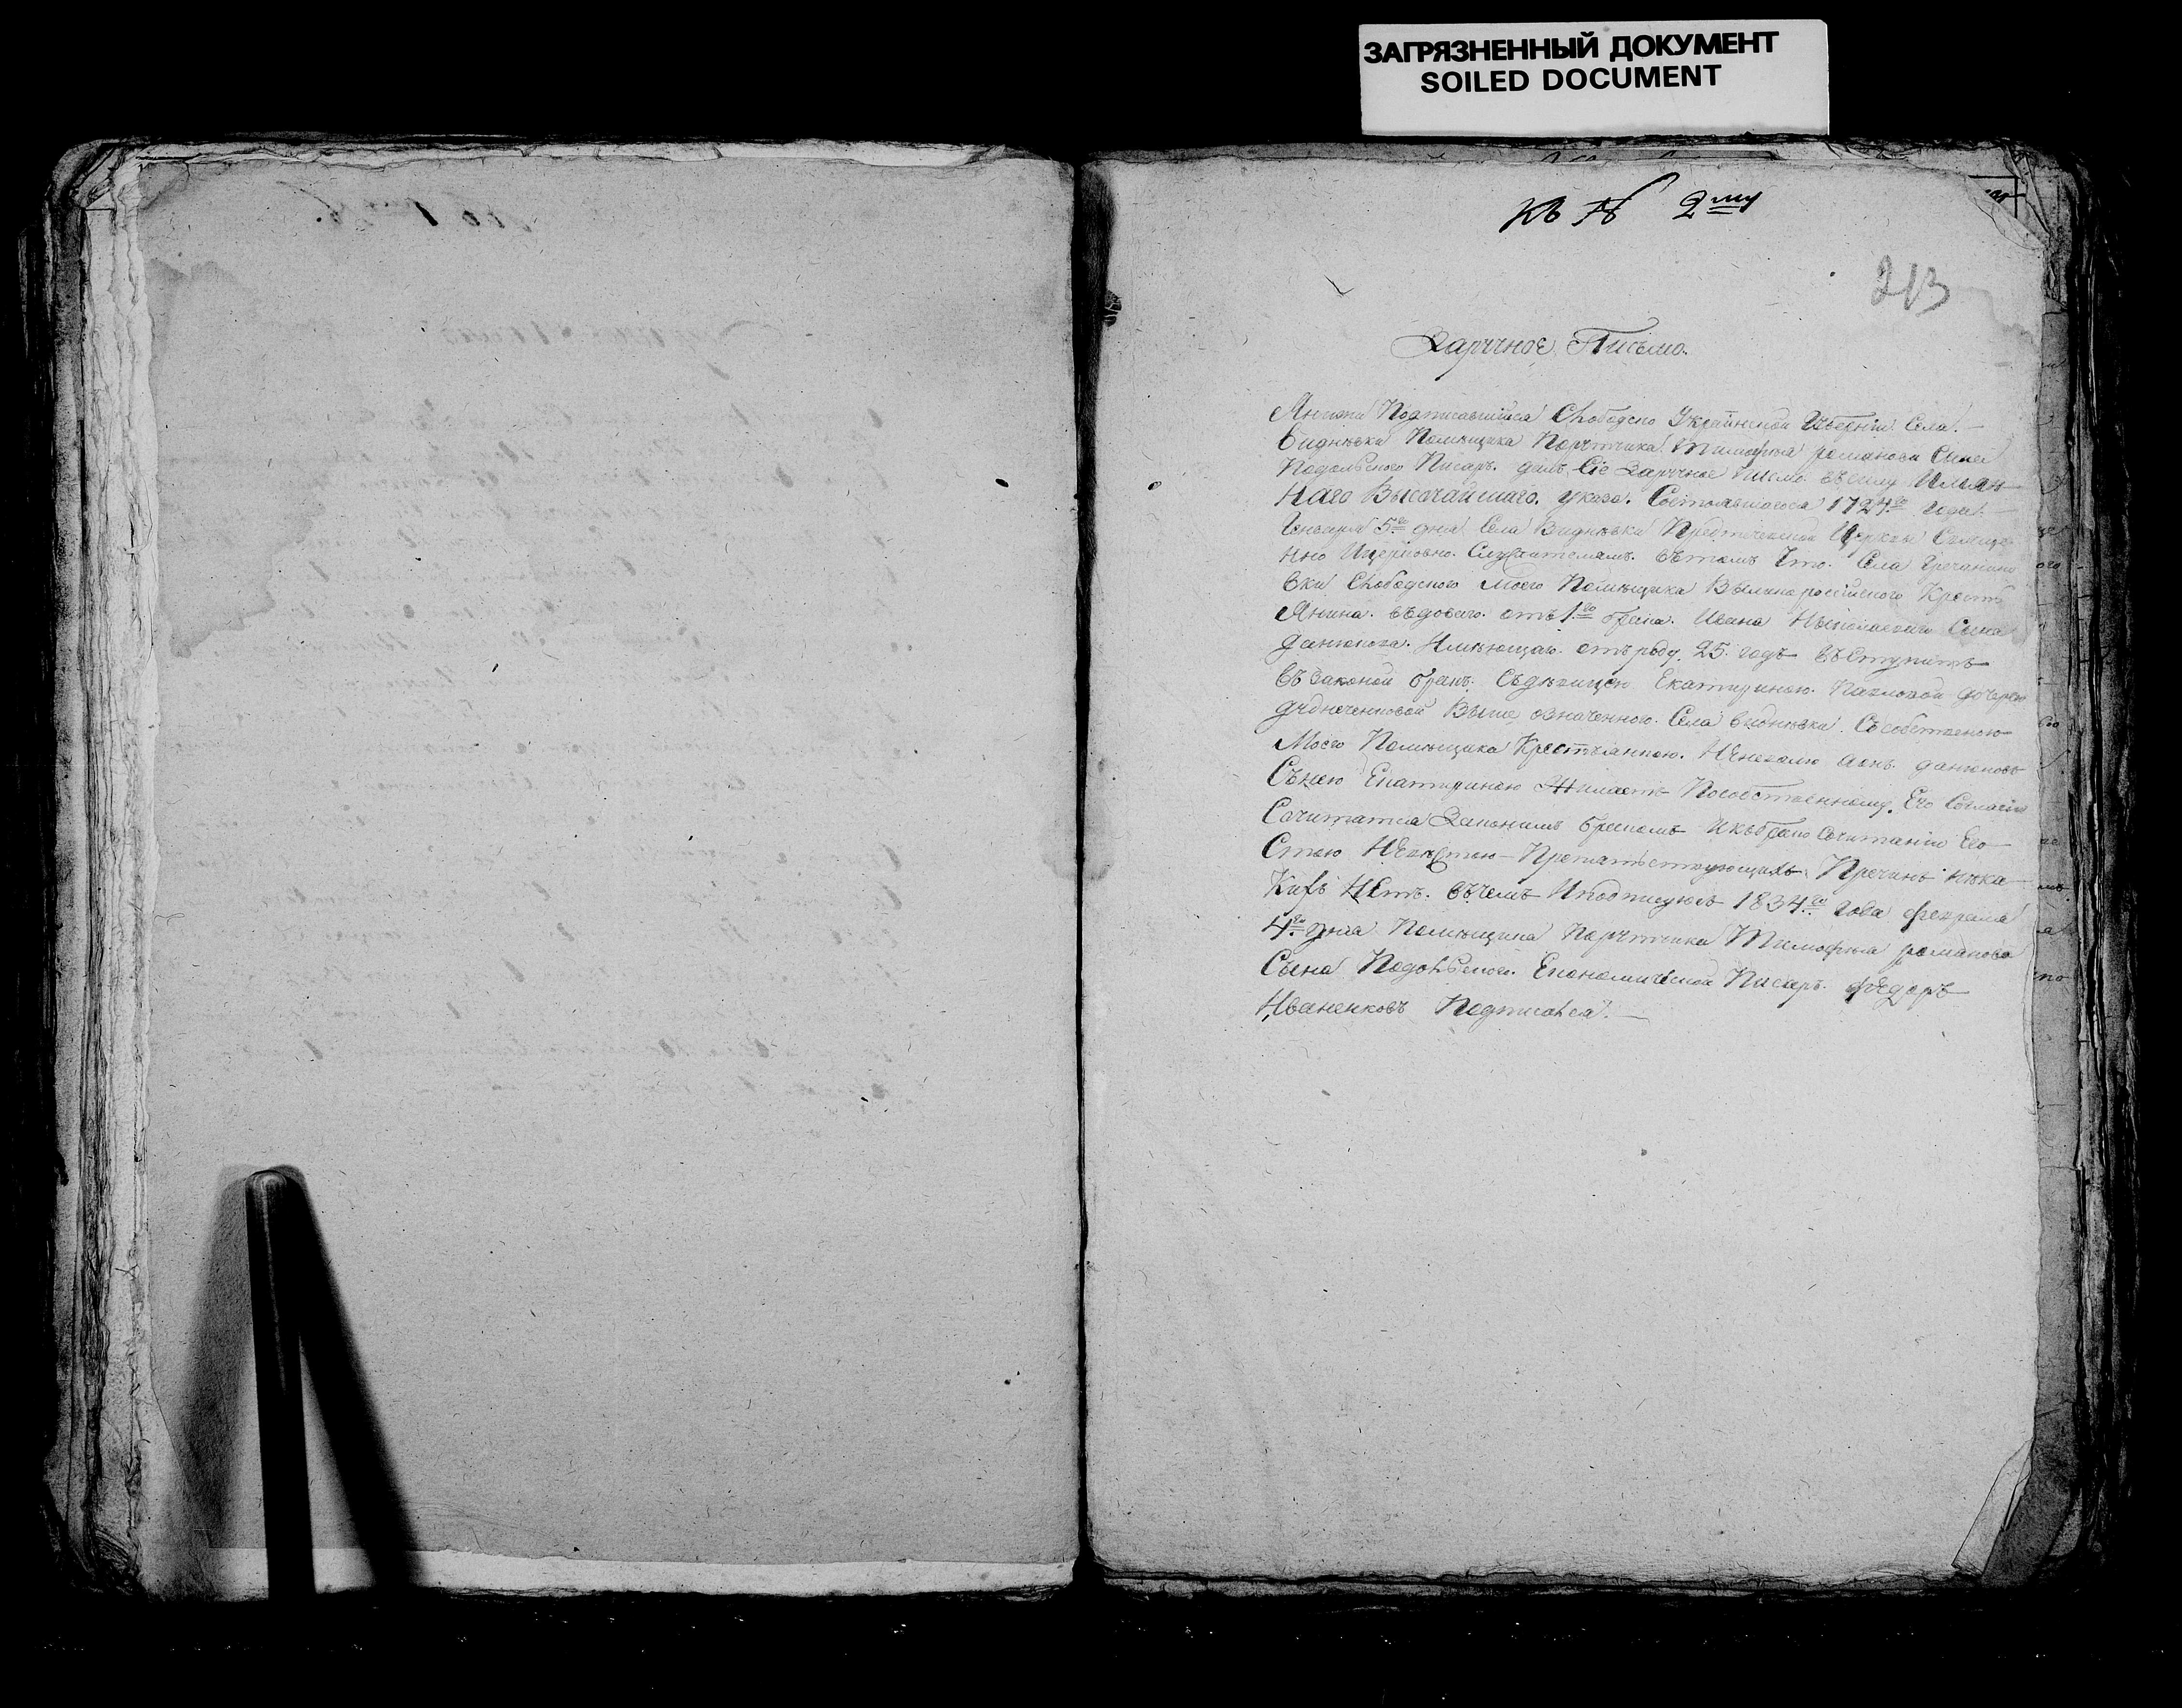 ЗАГРЯЗНЕННЫЙ ДОКУМЕНТ
SOILED DOCUMENT
къ № 2му
213
Заручное Письмо.
Янижи Подписавшийса Слободско Украинской Губерніи Села
Виднѣвки Помѣщика Порутчика Тимофѣя романова Сына
Подольского Писарь далъ Сіе Заручное Писмо въсилу Имян
Наго Высочайшаго указа. Состоявшагоса 1724го года
Генваря 5го дня Села Виднѣвки Предтечевской Церквы Свяще
нно Ицерковно Служителямъ вътомъ Что Села
вки Слободского Моего Помѣщика Вылико россійского Кресть
Янина въдового отъ 1го брака Ивана Сына
Данилова Имѣющаго отъроду 25 годъ въступить
въ Законой бракъ Съдѣвицею Екатириною Павловой дочерью
Выше означенного Села виднѣвки Съсобственою
Моего Помѣщика Крестьянкою Данилов
Сънею Екатириною Жилаетъ Пособственному Его Согласію
Сочитатса Законимъ бракомъ Икъбрако Сочитанію Его
Стою НЕвѣстою Препятствующихъ Причинъ нѣка
Кихъ НЕтъ въчемъ Иподписуюсь 1834го Года февраля
4го дня Помѣщика Порутчика Тимофѣя романова
Сына Подольского Економической Писарь фЕдоръ
Иваненковъ Подписалса